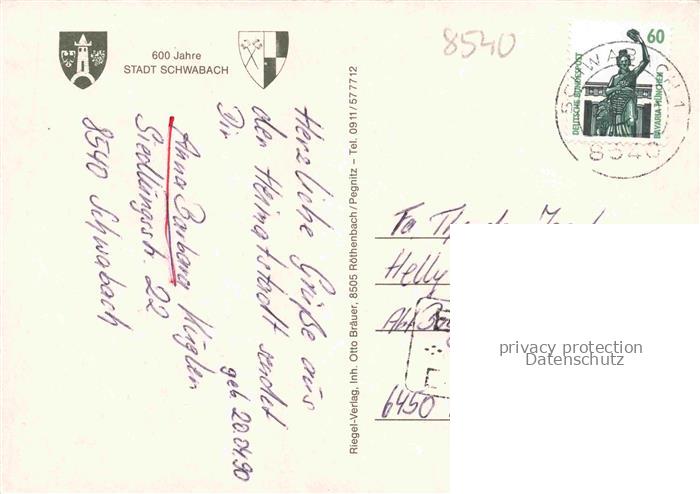 600 Jahre
STADT SCHWABACH
8540
60
DEUTSCHE BUNDESPOST
BAVARIA MÜNCHEN
SCHWABACH 1
8540
Herzliche Grüße aus
der Heimatstadt sendet
Dir
Anna Barbara
Siedlungsstr. 22
8540 Schwabach
geb. 20.04.90
Riegel-Verlag, Inh. Otto Bräuer, 8505 Röthenbach/Pegnitz – Tel. 0911/577712
Helly
6450
privacy protection
Datenschutz